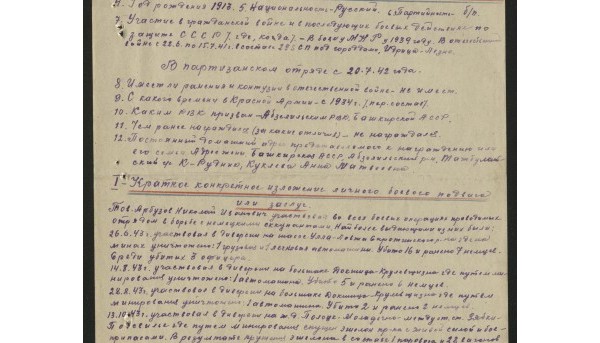 4. Год рождения 1918. 5. Национальность - Русский. 6. Партийность - б/п.
7. Участие в гражданской войне и в последующих боевых действиях по
защите СССР /где, когда/ - В войну МНР в 1939 году. В отечественной
войне с 22.6. по 15.7.41г. в составе СП под городами
В партизанском отряде с 20.7.42 года.
8. Имеет ли ранения и контузии в отечественной войне - не имеет.
9. С какого времени в Красной Армии - с 1939г. /пер. состав/.
10. Каким РВК призван - Абзелиловским РВК, Башкирской АССР.
11. Чем ранее награжден /за какие отличия/ - не награждался.
12. Постоянный домашний адрес представляемого к награждению или
его семьи Адрес жены Башкирская АССР, Абзелиловский р-н,
К-Рудник, Куклева Анна Матвеевна
I - Краткое конкретное изложение личного боевого подвига
или заслуг.
Тов. Арбузов Николай Иванович участвовал во всех боевых операциях проведенных
отрядом в борьбе с немецкими оккупантами. Наиболее выдающимися из них были:
26.6.43г. участвовал в диверсии на шоссе
минах уничтожено: 1 грузовая и 1 легковая автомашина. Убито 16 и ранено 7 немцев.
Среди убитых 3 офицера.
14.8.43г. участвовал в диверсии на большаке Докшицы - Крулевщизна где путем ми-
нирования уничтожена 1 автомашина. Убито 5 и ранено 6 немцев.
28.8.43г. участвовал в диверсии на большаке Докшицы - Крулевщизна где путем
минирования уничтожена 1 автомашина. Убито 2 и ранено 2 немцев.
13.10.43г. участвовал в диверсии на ж.д. Полоцк - Молодечно между ст. Зябки -
Подсвилье где путем минирования спущен эшелон врага с живой силой и бое-
припасами. В результате крушения эшелона в составе 1 паровоза и 22 вагонов